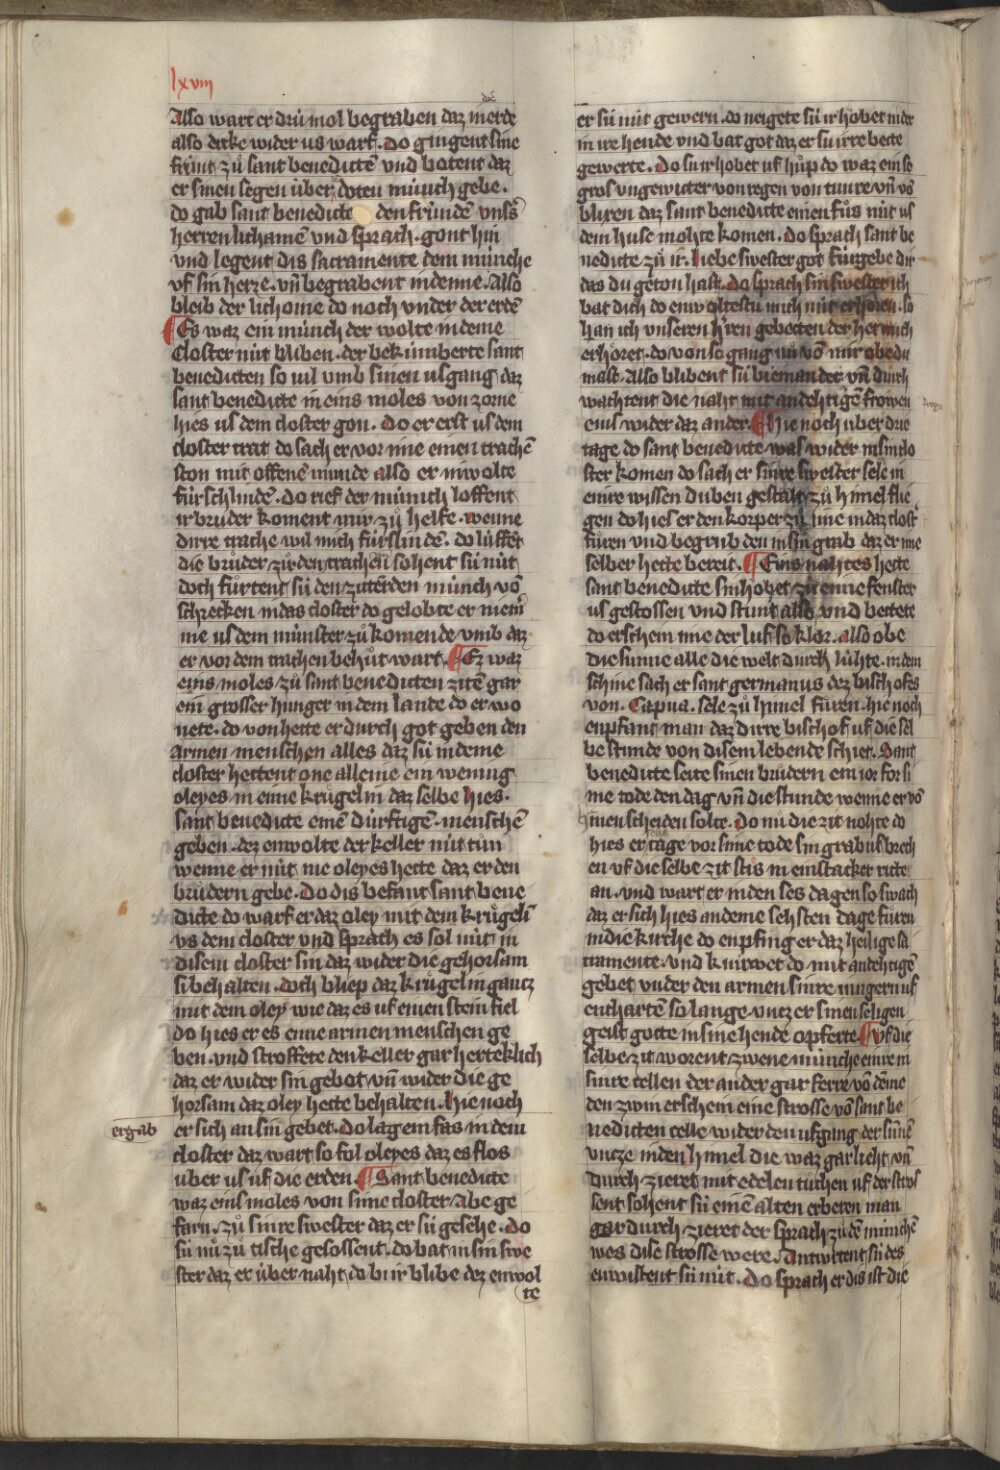 lxviii
die
Also wart er drú mol begraben daz in erde
also dicke wider us warf. Do gingent sine
frúnt zů sant benedictē vnd botent daz
er sinen segen úber doten múnich gebe.
do gab sant benedicte den frúndē vnss̄
herren lichamē vnd sprach. gont hin
vnd legent dis sacramente dem múnche
vf sin herze. vn̄ begrabent in denne. Also
bleib der lichome do noch vnder der erdē
¶ Es waz ein múnch der wolte in deme
Closter nút bliben. der bekúmberte sant
benedicten so vil vmb sinen usgang daz
sant benedicte in eins moles von zorne
hies us dem closter gon. Do er erst us dem
closter trat do sach er vor ime einen trachē
ston mit offenē munde also er in wolte
fúrschlindē. Do rief der múnich loffent
ir brúder koment mir zů helfe. wenne
dirre trache wil mich fúrslindē. do luffēt
die brůder zů den trachen sohent sú nút
doch fůrtent sú den zitterden múnch vō
schrecken in das closter do gelobte er niem̄
me us dem múnster zů komende vmb daz
er vor dem trachen behůt wart. ¶ Ez waz
eins moles zů sant benedicten zitē gar
ein grosser hunger in dem lande do er wo
nete. do von hette er durch got geben den
armen menschen alles daz sú in deme
closter hettent one alleine ein wening
oleyes in eime krůgelin daz selbe hies.
sant benedicte einē dúrftigē menschē
geben. dez enwolte der keller nút tůn
wenne er nút me oleyes hette daz er den
brůdern gebe. Do dis befant sant bene
dicte do warf er daz oley mit dem krůgelī
vs dem closter vnd sprach es sol nút in
disem closter sin daz wider die gehorsam
si behalten. doch bliep daz krůgelin gantz
mit dem oley wie daz es uf einen stein fiel
do hies er es eime armen menschen ge
ben. vnd stroffete den keller gar herteklich
daz er wider sin gebot vn̄ wider die ge
horsam daz oley hette behalten. hie noch
er gab
er sich an sin gebet. Do lag ein fas in dem
closter daz wart so fol oleyes daz es flos
úber us uf die erden. ¶ Sant benedicte
waz eins moles von sime closter abe ge
farn. zů sinre swester daz er sú gesehe. do
sú nů zů tische gesossent. do bat in sin swe
ster daz er úber naht do bi ir blibe dez enwol
te
er sú nút gewern. do neigete sú ir hŏbet nider
in ire hende vnd bat got daz er sú irre bette
gewerte. Do sú ir hŏbet uf hůp do waz ein so
gros vngewiter von regen von tunre vn̄ vō
blixen daz sant benedicte einen fůs nút us
dem huse mohte komen. do sprach sant be
nedicte zů ir. liebe swester got fúrgebe dir
das du geton hast. do sprach sin swester ich
bat dich do enwoltestu mich nút erhören. so
han ich vnseren h̄ren gebetten der het mich
erhöret. do von so gang nů vō mir obe du
mast. Also blibent sú bi einander vn̄ durch
wachtent die naht mit andehtigē frowen
eins wider daz ander. ¶ Hie noch úber drie
tage do sant benedicte was wider in sin clo
ster komen do sach er sinre swester sele in
einre wissen duben gestalt zů himel flie
gen do hies er den korper zů ime in daz clost̄
fůren vnd begrůb den in sin grab daz er ime
selber hette bereit. ¶ Eins nahtes hette
sant benedicte sin hŏbet zů eime fenster
us gestossen vnd stunt also vnd bettete
do erschein ime der luft so klor. also obe
die sunne alle die welt durch lúhte. in dem
schine sach er sant germanus dez bischofes
von. Capua. sele zů himel fůren. hie noch
enpfant man daz dirre bischof uf die sel
be stunde von disem lebende schiet. Sant
benedicte seite sinen brůdern ein jor for si
me tode den dag vn̄ die stunde wenne er vō
hinnen scheiden solte. Do nú die zit nohte do
hies er tage vor sime tode sin grab uf brech
en vf die selbe zit sties in ein stacker ritte
an. vnd wart er in den ses dagen so swach
daz er sich hies an deme sehsten dage fůren
in die kirche do enpfing er daz heilige sa
cramente. vnd knúwet do mit andehtigē
gebet vnder den armen sinre iungern uf
enthartē so lange. vntz er sinen seligen
geist gotte in sine hende opferte. ¶ Vf die
selbe zit worent zwene múnche einre in
sinre zellen der ander gar ferre vō deme
den zwin erschein eine strosse vō sant be
nedicten celle wider den ufgang der sunnē
vntze in den himel die waz gar lieht vn̄
durch zieret mit edelen tůchen uf der stros
sent sohent sú einē alten erberen man
gar durch zieret der sprach zů dē múnchē
wes dise strosse were. Antwrtent sú des
enwistent sú nút. Do sprach er dis ist die